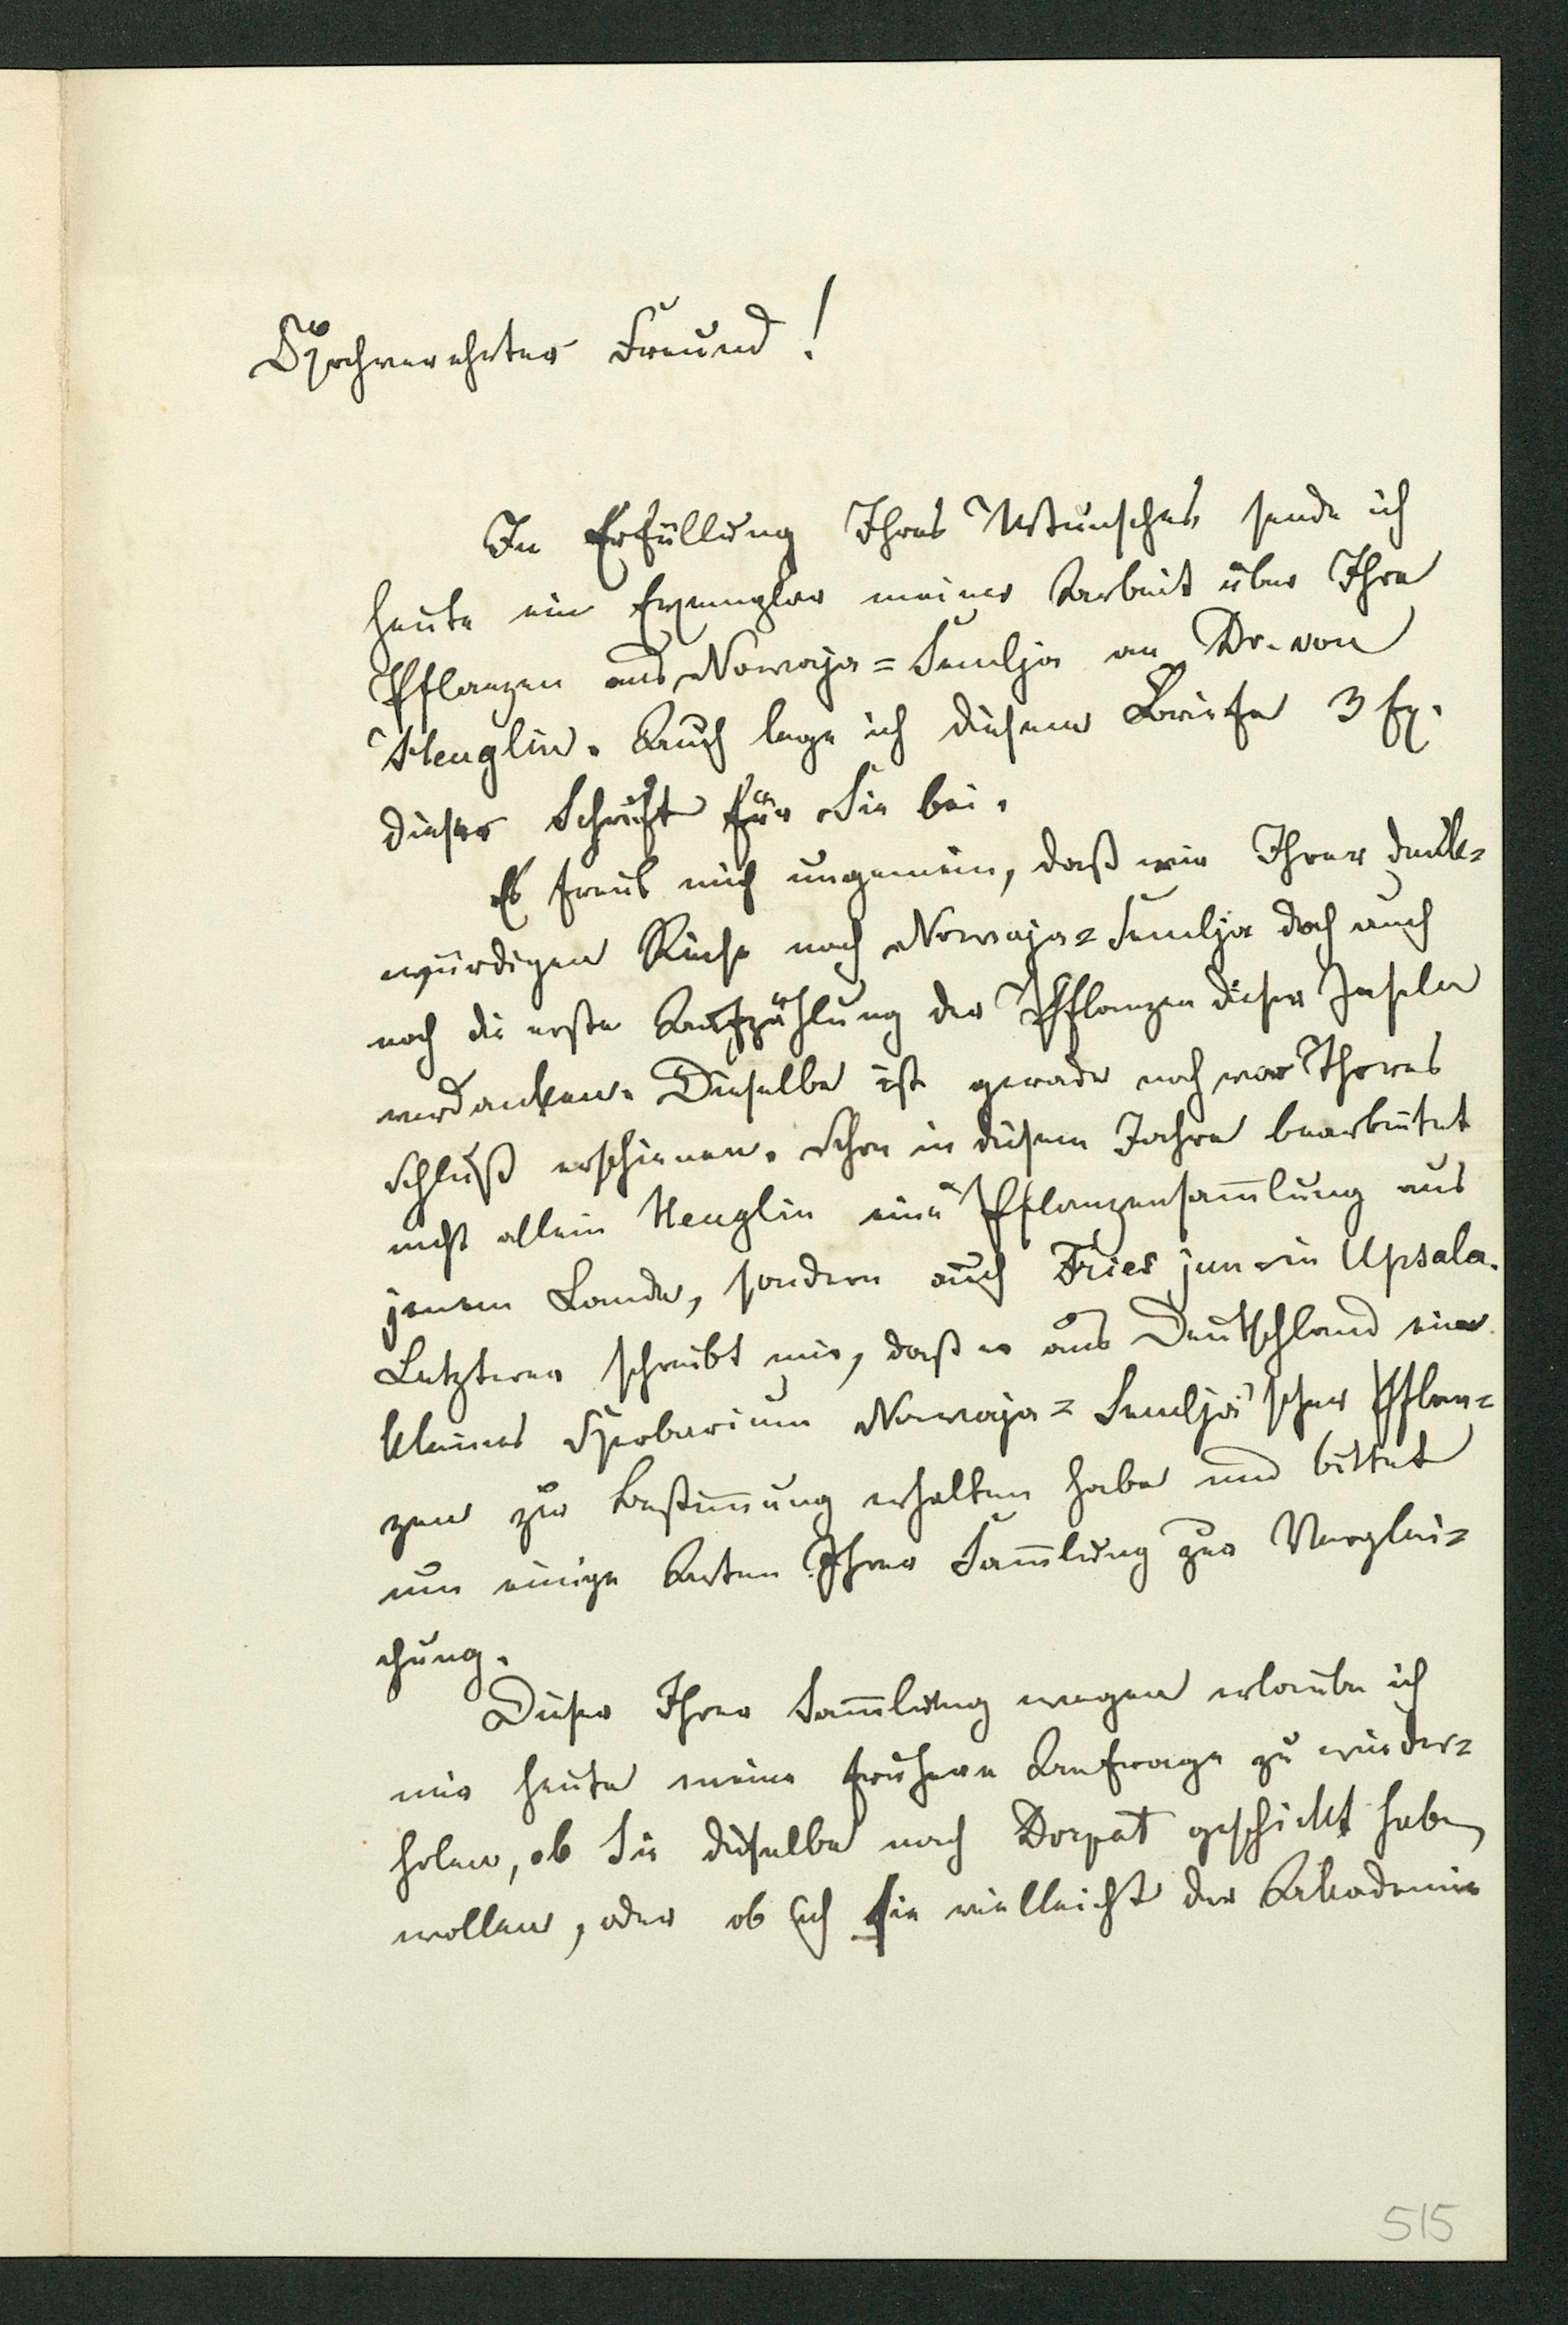 Hochverehrter Freund!
In Erfüllung Ihres Wunsches sende ich
heute ein Exemplar meiner Arbeit über Ihre
Pflanzen aus Nowaja=Semlja an Dr. von
Heuglin. Auch lege ich diesem Briefe 3 Ex.
dieser Schrift für Sie bei.
Es freut mich ungemein, daß wir Ihrer denk=
würdigen Reise nach Nowaja=Semlja doch auch
noch die erste Aufzählung der Pflanzen dieser Inseln
verdanken. Dieselbe ist gerade noch vor Thores
schluß erschienen. Schon in diesem Jahre bearbeitet
nicht allein Heuglin eine Pflanzensam̄lung aus
jenem Lande, sondern auch Fries jun. in Upsala.
Letzterer schreibt mir, daß er aus Deutschland ein
kleines Herbarium Nowaja=Semlja'scher Pflan=
zen zur Bestim̄ung erhalten habe und bittet
um einige Arten Ihrer Sam̄lung zur Verglei=
chung.
Dieser Ihrer Sam̄lung wegen erlaube ich
mir heute meine frühere Anfrage zu wieder=
holen, ob Sie dieselbe nach Dorpat geschickt haben
wollen, oder ob ich sie vielleicht der Akademie
515